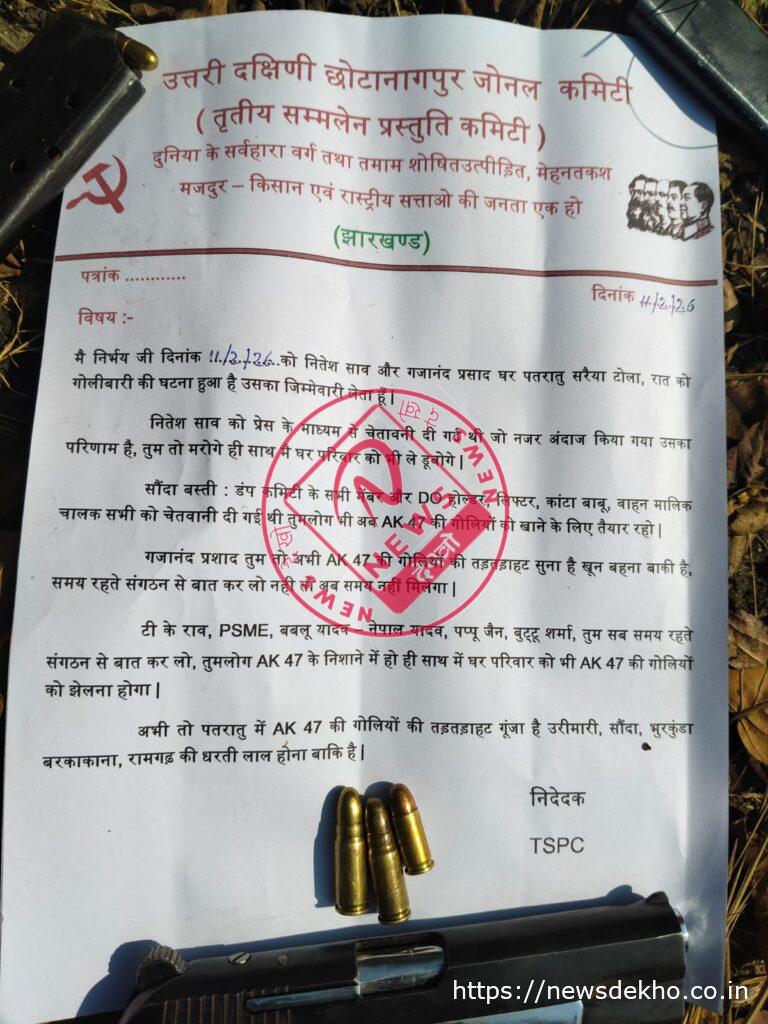 उत्तरी दक्षिणी छोटानागपुर जोनल कमिटी
( तृतीय सम्मलेन प्रस्तुति कमिटी )
दुनिया के सर्वहारा वर्ग तथा तमाम शोषितउत्पीड़ित, मेहनतकश
मजदुर – किसान एवं रास्ट्रीय सत्ताओ की जनता एक हो
(झारखण्ड)
पत्रांक ............
दिनांक 11/2/26
विषय :-
मै निर्भय जी दिनांक 11/2/26 को नितेश साव और गजानंद प्रसाद घर पतरातु सरैया टोला, रात को
गोलीबारी की घटना हुआ है उसका जिम्मेवारी लेता हूँ |
नितेश साव को प्रेस के माध्यम से चेतावनी दी गई थी जो नजर अंदाज किया गया उसका
परिणाम है, तुम तो मरोगे ही साथ मै घर परिवार को भी ले डूबोगे |
सौंदा बस्ती : डंप कमिटी के सभी मेंबर और DO होल्डर, लिफ्टर, कांटा बाबू, वाहन मालिक
चालक सभी को चेतवानी दी गई थी तुमलोग भी अब AK 47 की गोलियों को खाने के लिए तैयार रहो |
गजानंद प्रशाद तुम तो अभी AK 47 की गोलियों की तड़तड़ाहट सुना है खून बहना बाकी है,
समय रहते संगठन से बात कर लो नही तो अब समय नहीं मिलगा |
टी के राव, PSME, बबलू यादव – नेपाल यादव, पप्पू जैन, बुट्टू शर्मा, तुम सब समय रहते
संगठन से बात कर लो, तुमलोग AK 47 के निशाने में हो ही साथ में घर परिवार को भी AK 47 की गोलियों
को झेलना होगा |
अभी तो पतरातु में AK 47 की गोलियों की तड़तड़ाहट गूंजा है उरीमारी, सौंदा, भुरकुंडा
बरकाकाना, रामगढ़ की धरती लाल होना बाकि है |
निदेदक
TSPC
NEWS देखो
NEWS देखो
NEWS देखो
https://newsdekho.co.in